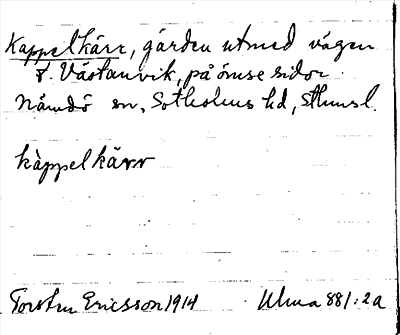 Kappelkärr, gården utmed vägen
t. Västanvik, på ömse sidor
Nämdö sn, Sotholms hd, Sthmsl.
kàppelkärr
Torsten Ericsson 1914 Ulma 881:2a